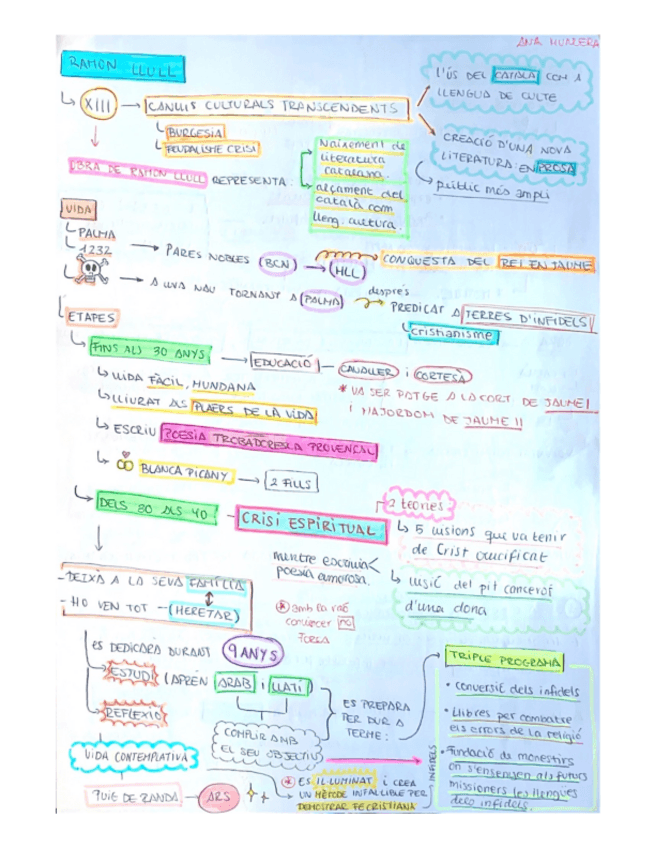 ANA MUNERA
RAMON LLULL
XIII → CANVIS CULTURALS TRANSCENDENTS
L'ÚS DEL CATALÀ COM A
LLENGUA DE CULTE
BURGESIA
FEUDALISME CRISI
CREACIÓ D'UNA NOVA
LITERATURA: EN PROSA
públic més ampli
OBRA DE RAMON LLULL REPRESENTA:
Naixement de
literatura
catalana.
alçament del
català com
lleng. cultura.
VIDA
PALMA
1232 → PARES NOBLES (BCN) → (MLL) CONQUESTA DEL REI EN JAUME
A UNA NAU TORNANT A (PALMA) després
PREDICAR A TERRES D'INFIDELS
cristianisme
ETAPES
FINS ALS 30 ANYS → EDUCACIÓ - CAVALLER i CORTESÀ
VIDA FÀCIL, MUNDANA
* VA SER PATGE A LA CORT DE JAUME I
i MAJORDOM DE JAUME II
LLIURAT ALS PLAERS DE LA VIDA
ESCRIU POESIA TROBADORESCA PROVENÇAL
BLANCA PICANY → 2 FILLS
DELS 30 ALS 40 - CRISI ESPIRITUAL
2 teories
5 visions que va tenir
de Crist crucificat
mentre escrivia
poesia amorosa.
visió del pit cancerós
d'una dona
- DEIXA A LA SEVA FAMÍLIA
- HO VEN TOT - (HERETAR)
* amb la raó
convèncer no
FORÇA
es DEDICARÀ DURANT 9 ANYS
ESTUDI (APRÈN ÀRAB i LLATÍ)
REFLEXIÓ
COMPLIR AMB
EL SEU OBJECTIU
ES PREPARA
PER DUR A
TERME:
TRIPLE PROGRAMA
• conversió dels infidels
• Llibres per combatre
els errors de la religió
• Fundació de monestirs
on s'ensenyen als futurs
missioners les llengües
dels infidels.
VIDA CONTEMPLATIVA
PUIG DE RANDA → ARS
* ES IL·LUMINAT i CREA
UN MÈTODE INFAL·LIBLE PER
DEMOSTRAR FE CRISTIANA
INFIDELS